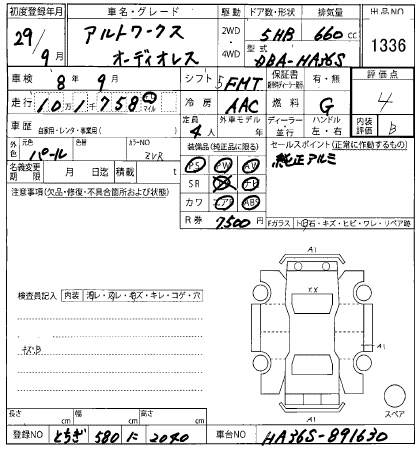 初度登録年月 車名・グレード 駆動 ドア数・形状 排気量 出品NO
29/9月 アルトワークス オーディオレス 2WD 4WD 5HB 660cc 1336
型式 DBA-HA36S
車検 8年 9月 シフト 5FMT 保証書 有・無 評価点
走行 10万1千758 km マイル 冷房 AAC 燃料 G 4
車歴 自家用・レンタ・事業用( ) 定員 4人 外車モデル 年 ディーラー・並行 ハンドル 左・右 内装評価 B
外色 元色 パール 色替 カラーNO ZVR 装備品(純正品に限る) セールスポイント(正常に作動するもの)
名義変更期限 月 日迄 積載 t PS PW AW 純正アルミ
注意事項(欠品・修復・不具合箇所および状態) SR ナビ
カワ エアB ABS
R券 7,500円 Fガラス ト石・キズ・ヒビ・ワレ・リペア跡
A1
検査員記入 内装 汚レ・スレ・キズ・キレ・コゲ・穴 XX
キズB A1
A1 スペア
長さ cm 幅 cm 高さ cm
登録NO とちぎ 580 に 2040 車台NO HA36S-891630